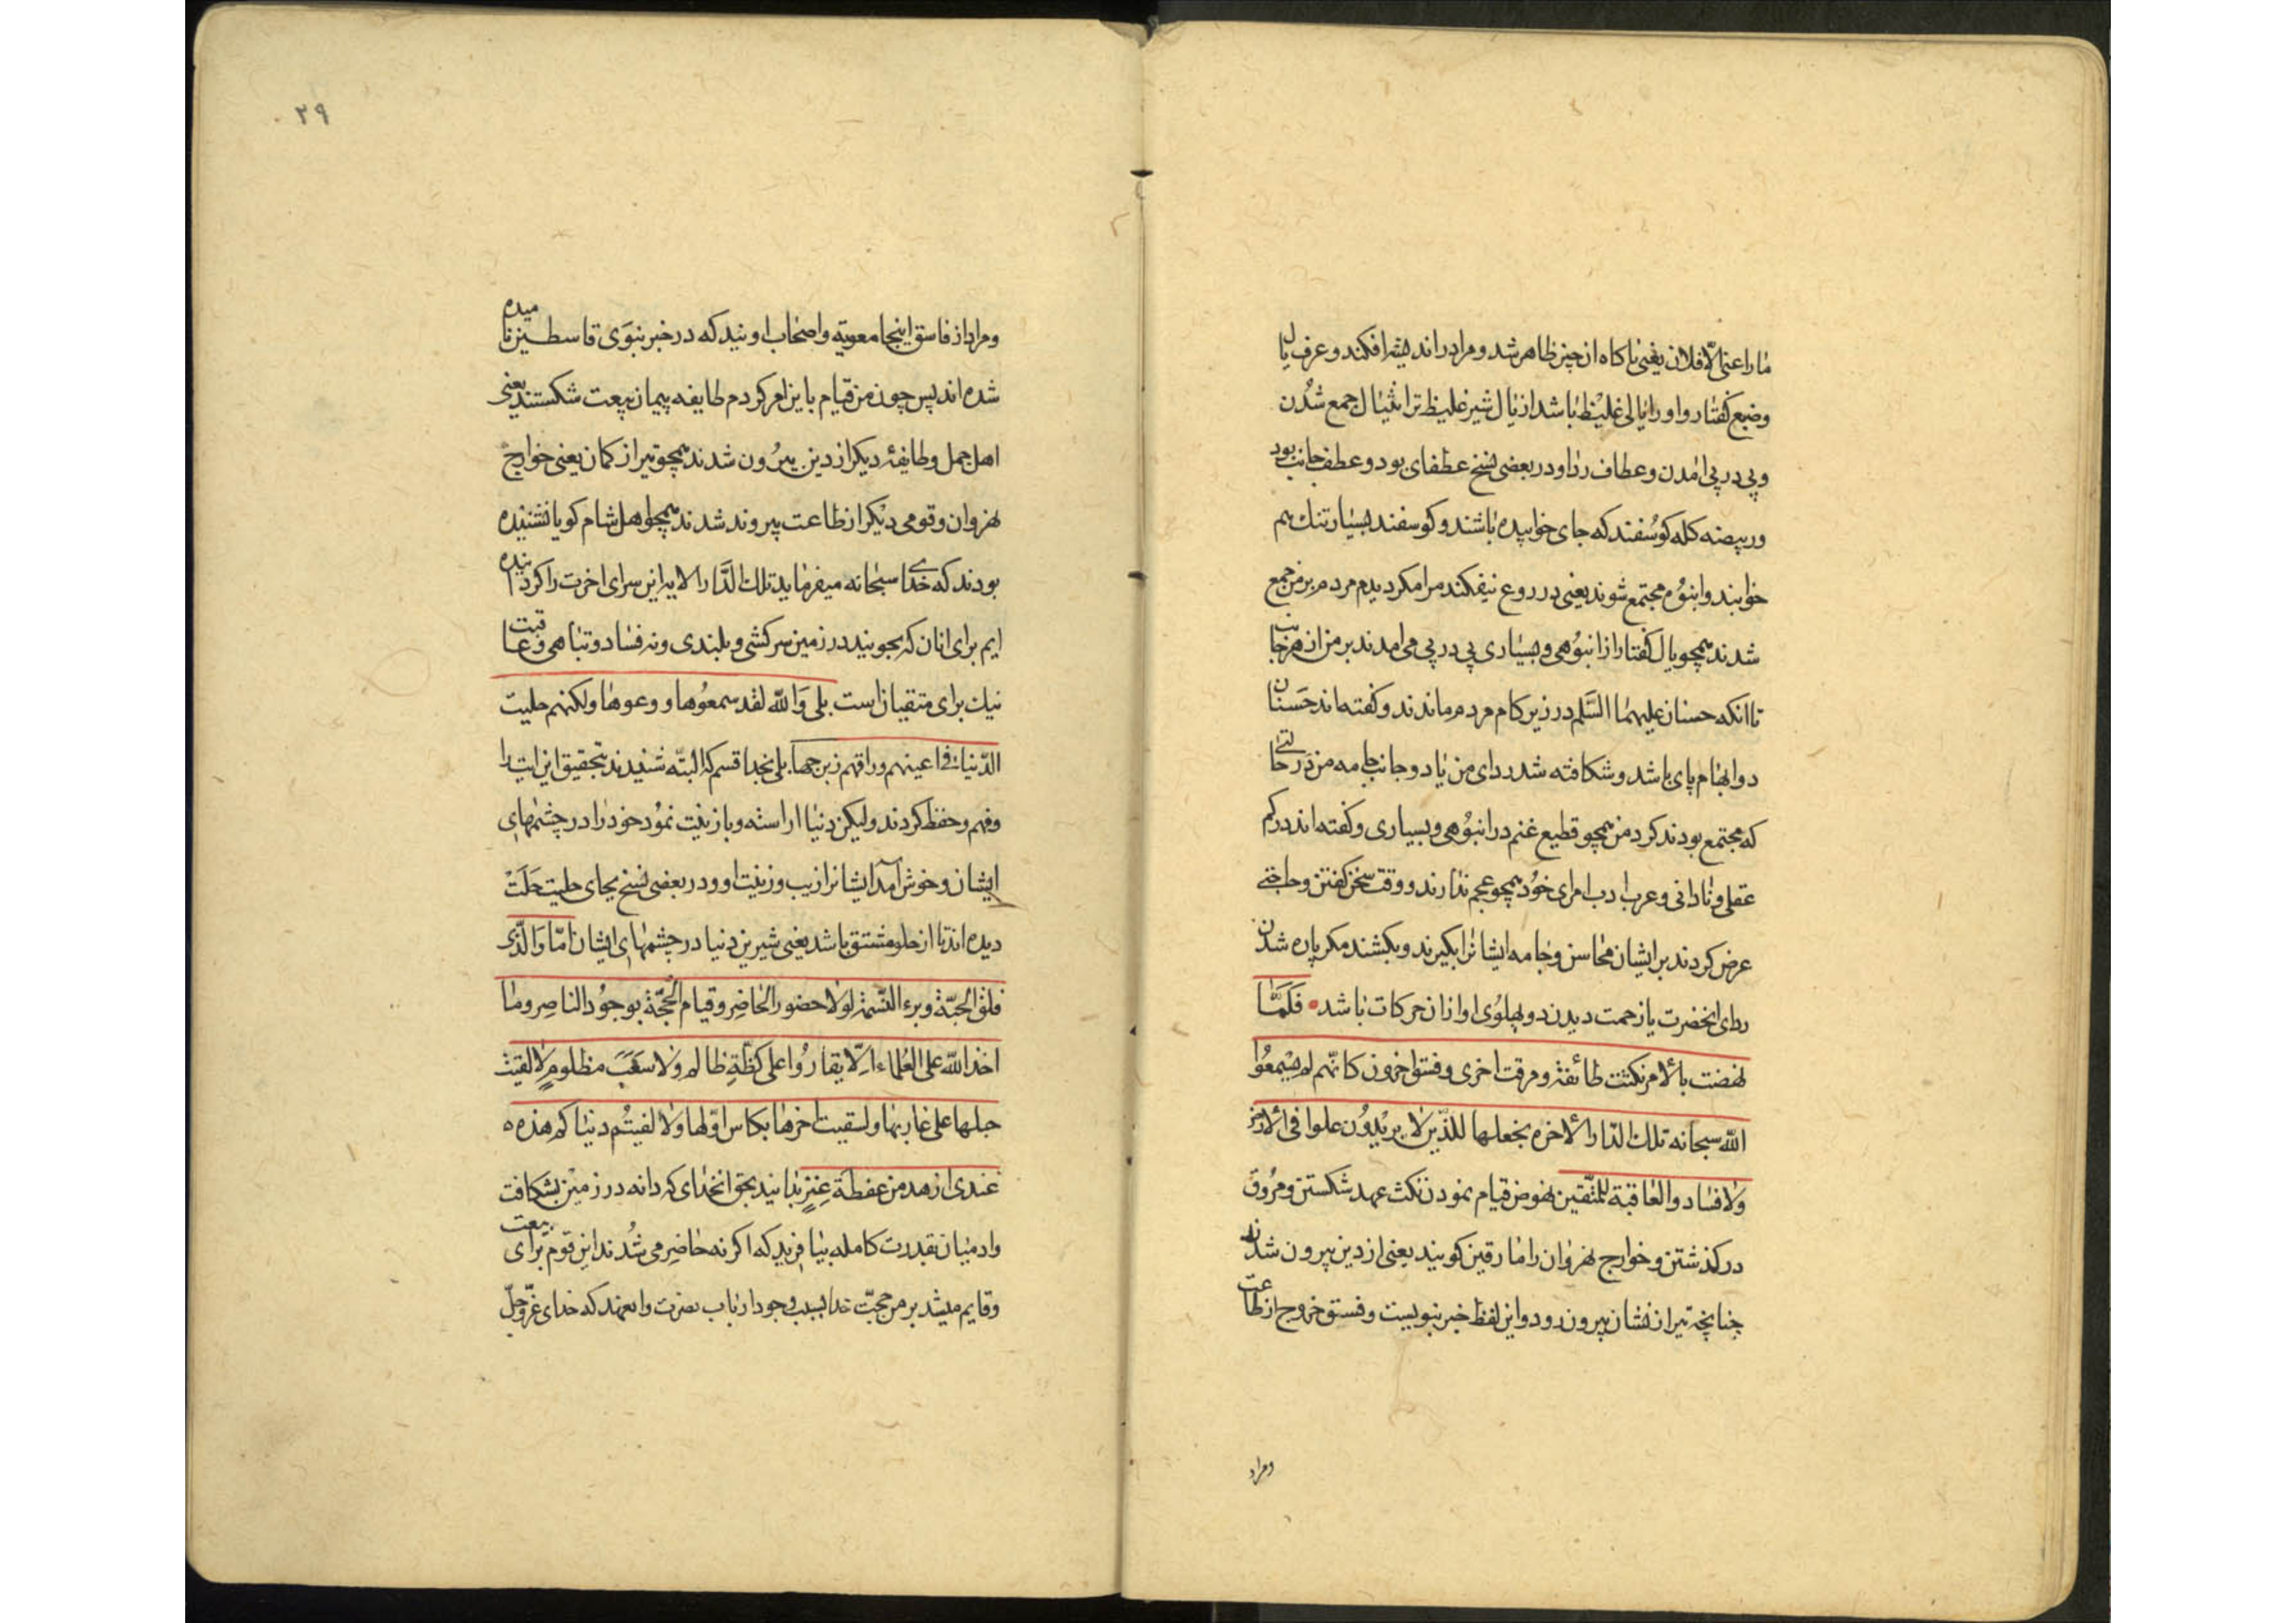 ما راعنی الّا فلان یعنی ناکاه ان چیز ظاهر شد و مراد در اندیشه افکند و عرف یال
وضبع کفتار و او را یالی غلیظ باشد از یال شیر غلیظ تر انثیال جمع شدن
و پی در پی امدن و عطاف ردا و در بعضی نسخ عطفای بود و عطف جانب بود
و ربیضه کله کوسفند که جای خوابیده باشند و کوسفند بسیار تنک بهم
خوابند و انبوه مجتمع شوند یعنی در روع نیفکند مرا مکر دیدم مردم بر من جمع
شدند همچو یال کفتار از انبوهی و بسیاری پی در پی می امدند بر من از هر جانب
تا انکه حسنان علیهما السلم در زیر کام مردم ماندند و کفته اند حسنان
دو ابهام پای باشد و شکافته شد ردای من یا دو جانب جامه من در حالتی
که مجتمع بودند کرد من همچو قطیع غنم در انبوهی و بسیاری و کفته اند در کم
عقلی و نادانی و عرب ادب امرای خود همچو عجم ندارند و وقت سخن کفتن و حاجتی
عرض کردند بر ایشان محاسن و جامه ایشانرا بکیرند و بکشند مکر پاره شدن
ردای انحضرت یا زحمت دیدن دو پهلوی او از ان حرکات باشد فَلَمَّا
نهضت بالامر نکثت طائفة و مرقت اخری و فسق اخرون کانّهم لم یسمعوا
الله سبحانه تلک الدّار الاخره نجعلها للذین لا یریدون علوا فی الارض
ولا فسادا والعاقبة للمتّقین نهوض قیام نمودن نکث عهد شکستن و مروق
در کذشتن و خوارج نهروان را مارقین کویند یعنی از دین بیرون شدن
چنانچه تیر از نشان بیرون رود و این لفظ خبر نبویست و فسق خروج از طاعت
و مراد
۲۹
و مراد از فاسق اینجا معویه و اصحاب اویند که در خبر نبوی قاسطین نامیده
شده اند پس چون من قیام باین امر کردم طایفه پیمان بیعت شکستند یعنی
اهل جمل و طایفهٔ دیکر از دین بیرون شدند همچو تیر از کمان یعنی خوارج
نهروان و قومی دیکر از طاعت بیرون شدند همچو اهل شام کویا نشنیده
بودند که خدای سبحانه میفرماید تلک الدّار الایه این سرای اخرت را کردانیده
ایم برای انان که نجویند در زمین سرکشی و بلندی و نه فساد و تباهی و عاقبت
نیک برای متقیان است بلی وَالله لقد سمعوها و وعوها ولکنهم حلیت
الدّنیا فی اعینهم و راقهم زبرجها بلی بخدا قسم که البتّه شنیدند بتحقیق این ایت را
و فهم و حفظ کردند ولیکن دنیا اراسته و با زینت نمود خود را در چشمهای
ایشان و خوش آمد ایشانرا زیب و زینت او و در بعضی نسخ بجای حلیت حَلَتْ
دیده اند تا از حلو مشتق باشد یعنی شیرین دنیا در چشمهای ایشان امّا وَالّذی
فلق الحبّة و برء النّسمة لولا حضور الحاضر و قیام الحجّة بوجود الناصر وما
اخذ الله علی العلماء الّا یقارّوا علی کظّةِ ظالم ولا سَغَبَ مظلومٍ لالقیت
حبلها علی غاربها ولسقیت اخرها بکاس اوّلها ولالفیتم دنیاکم هذه
عندی ازهد من عفطة عنزٍ بدانید بحق انخدای که دانه در زمین بشکافت
و ادمیان بقدرت کامله بیافرید که اکر نه حاضر می شدند این قوم برای بیعت
و قایم میشد بر من حجّت خدا بسبب وجود ارباب نصرت و انعهد که خدای عزّ وجلّ